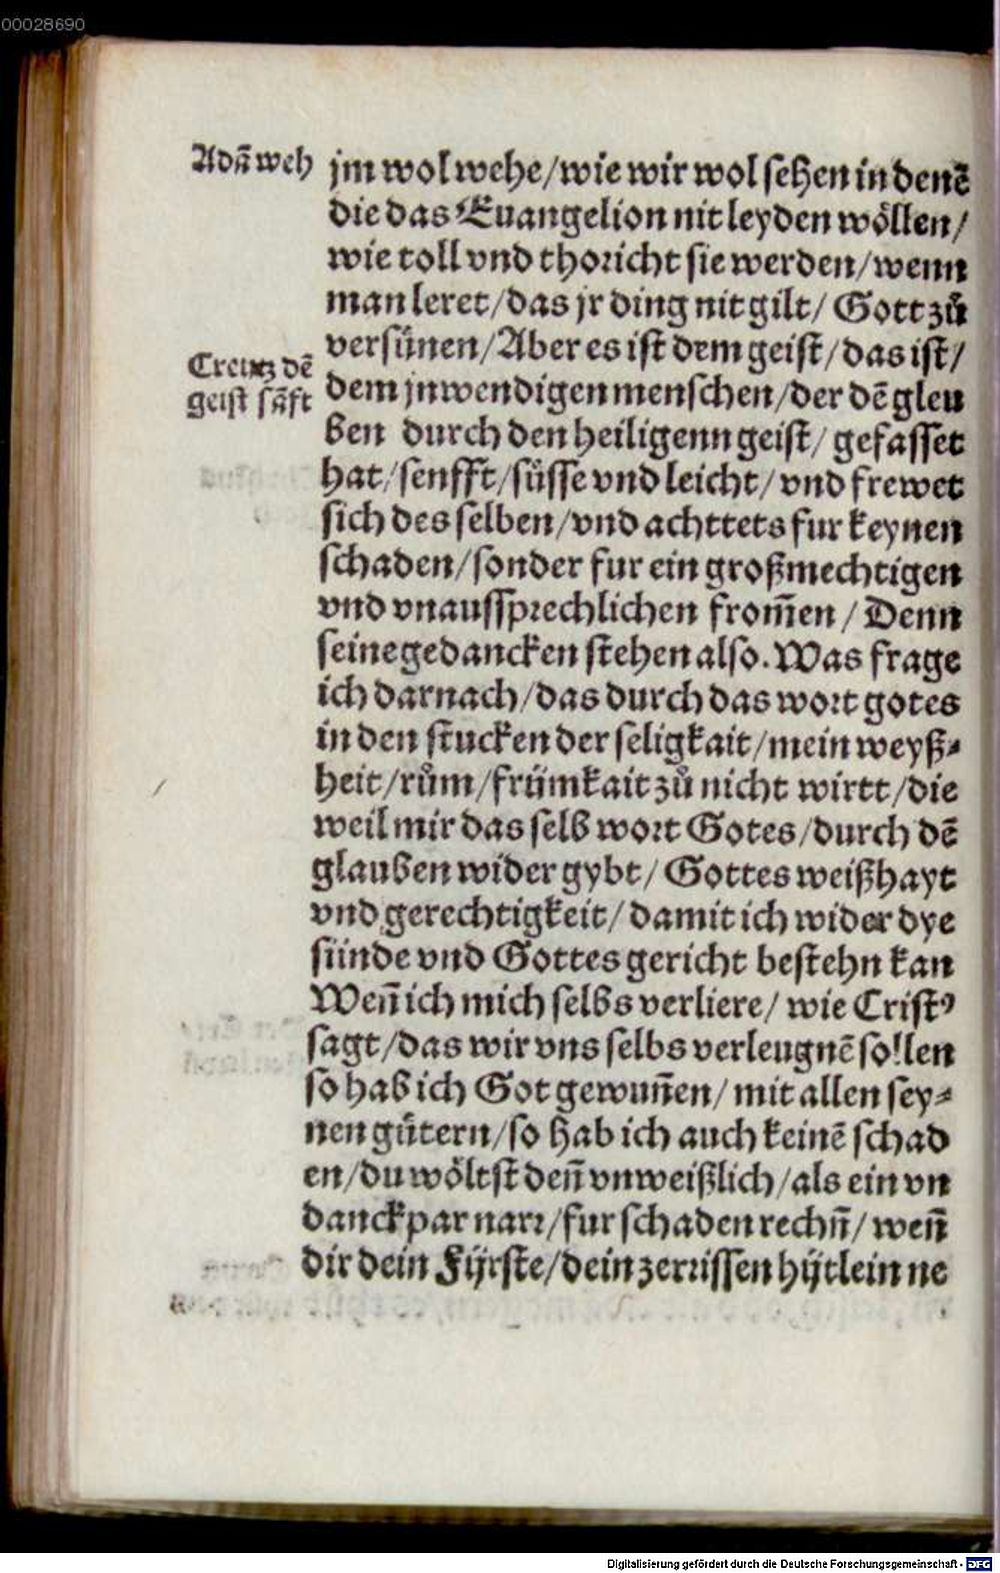 00028690
Adñ weh
jm wol wehe/wie wir wol sehen in denē
die das Euangelion nit leyden wöllen/
wie toll vnd thoricht sie werden/wenn
man leret/das jr ding nit gilt/ Gott zů
versünen/Aber es ist dem geist/das ist/
Creutz dē
geist sãft
dem jnwendigen menschen/der dē gleu
ben durch den heiligenn geist/ gefasset
hat/senfft/süsse vnd leicht/ vnd frewet
sich des selben/vnd achttets fur keynen
schaden/sonder fur ein großmechtigen
vnd vnaussprechlichen from̄en / Denn
seine gedancken stehen also. Was frage
ich darnach/das durch das wort gotes
in den stucken der seligkait/mein weyß⸗
heit/rům/frümkait zů nicht wirtt/die
weil mir das selb wort Gotes/durch dē
glauben wider gybt/ Gottes weißhayt
vnd gerechtigkeit/ damit ich wider dye
sünde vnd Gottes gericht bestehn kan
Wen̄ ich mich selbs verliere/ wie Cristꝰ
sagt/das wir vns selbs verleugnē sollen
so hab ich Got gewun̄en/ mit allen sey⸗
nen gütern/so hab ich auch keinē schad
en/du wöltst den̄ vnweißlich/als ein vn
danckpar narr/fur schaden rechn̄/ wen̄
dir dein Fÿrste/dein zerrissen hÿtlein ne
Digitalisierung gefördert durch die Deutsche Forschungsgemeinschaft - DFG